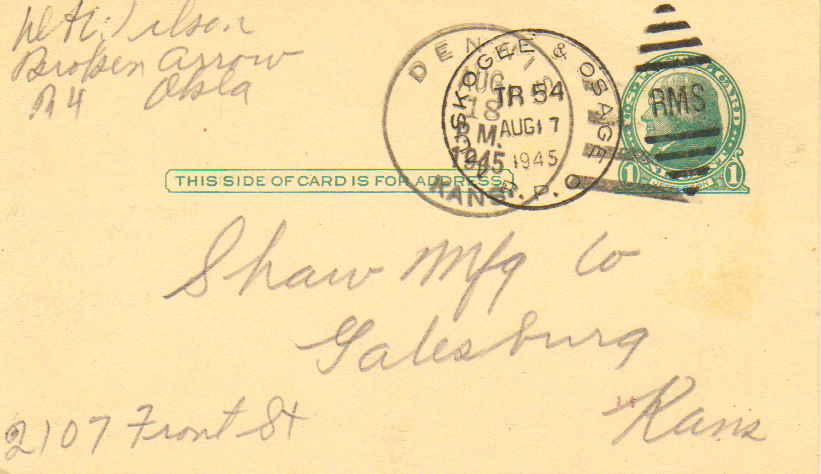 Wilson
Broken Arrow
R 4 Okla
DENNIS
AUG
18
PM
1945
KANS.
MUSKOGEE & OSAGE
TR 54
AUG 17
1945
R.P.O
RMS
THIS SIDE OF CARD IS FOR ADDRESS
1 1
Shaw Mfg Co
Galesburg
Kans
2107 Front St